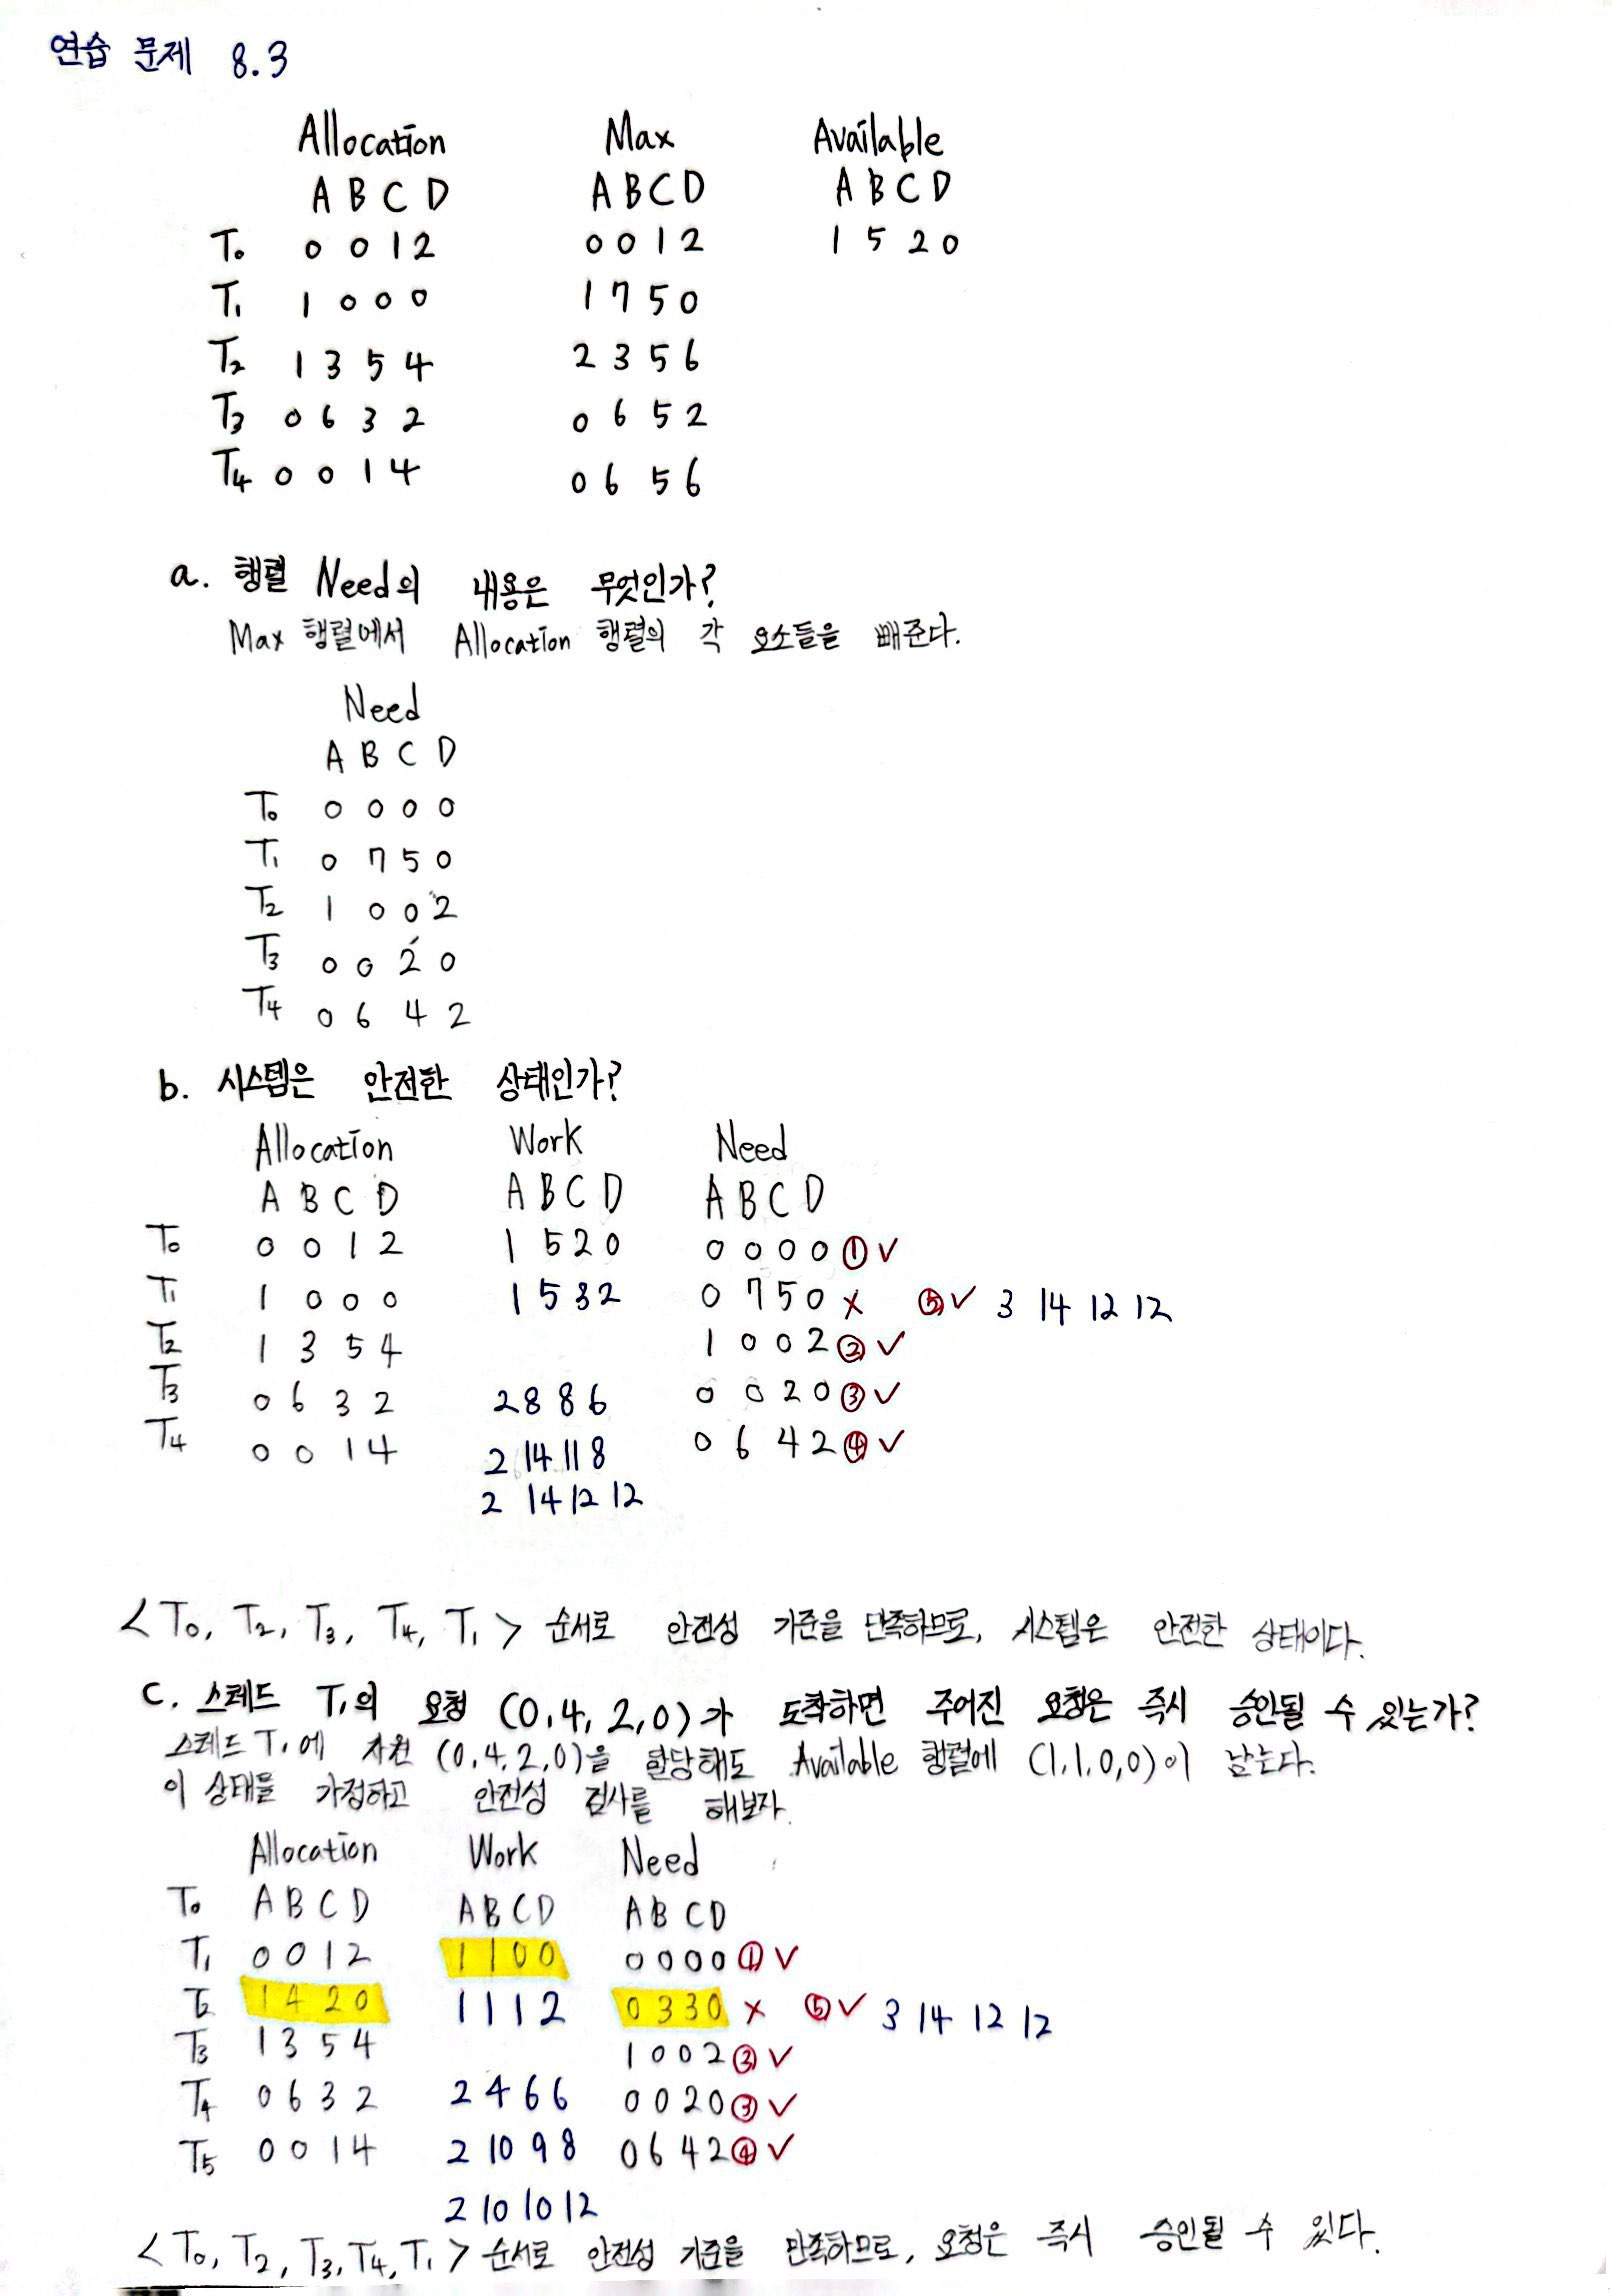 연습 문제 8.3
Allocation Max Available
A B C D A B C D A B C D
T0 0 0 1 2 0 0 1 2 1 5 2 0
T1 1 0 0 0 1 7 5 0
T2 1 3 5 4 2 3 5 6
T3 0 6 3 2 0 6 5 2
T4 0 0 1 4 0 6 5 6
a. 행렬 Need의 내용은 무엇인가?
Max 행렬에서 Allocation 행렬의 각 요소들을 빼준다.
Need
A B C D
T0 0 0 0 0
T1 0 7 5 0
T2 1 0 0 2
T3 0 0 2 0
T4 0 6 4 2
b. 시스템은 안전한 상태인가?
Allocation Work Need
A B C D A B C D A B C D
T0 0 0 1 2 1 5 2 0 0 0 0 0 ① ✓
T1 1 0 0 0 1 5 3 2 0 7 5 0 × ⑤ ✓ 3 14 12 12
T2 1 3 5 4 1 0 0 2 ② ✓
T3 0 6 3 2 2 8 8 6 0 0 2 0 ③ ✓
T4 0 0 1 4 2 14 11 8 0 6 4 2 ④ ✓
2 14 12 12
< T0, T2, T3, T4, T1 > 순서로 안전성 기준을 만족하므로, 시스템은 안전한 상태이다.
c. 스레드 T1의 요청 (0,4,2,0)가 도착하면 주어진 요청은 즉시 승인될 수 있는가?
스레드 T1에 자원 (0,4,2,0)을 할당해도 Available 행렬에 (1,1,0,0)이 남는다.
이 상태를 가정하고 안전성 검사를 해보자.
Allocation Work Need
T0 A B C D A B C D A B C D
T1 0 0 1 2 1 1 0 0 0 0 0 0 ① ✓
T2 1 4 2 0 1 1 1 2 0 3 3 0 × ⑤ ✓ 3 14 12 12
T3 1 3 5 4 1 0 0 2 ② ✓
T4 0 6 3 2 2 4 6 6 0 0 2 0 ③ ✓
T5 0 0 1 4 2 10 9 8 0 6 4 2 ④ ✓
2 10 10 12
< T0, T2, T3, T4, T1 > 순서로 안전성 기준을 만족하므로, 요청은 즉시 승인될 수 있다.